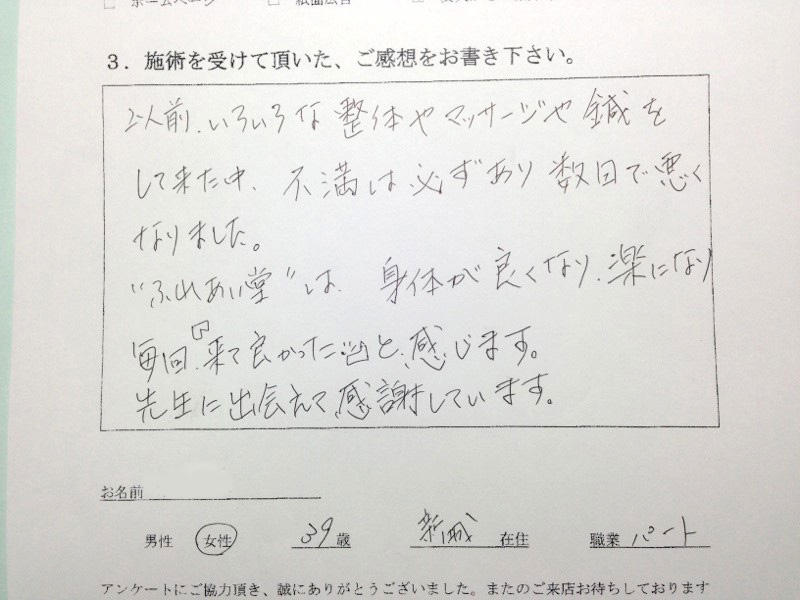 ホームページ □ 紙面広告
3．施術を受けて頂いた、ご感想をお書き下さい。
以前、いろいろな整体やマッサージや鍼を
して来た中、不満は必ずあり数日で悪く
なりました。
"ふれあい堂"は、身体が良くなり、楽になり
毎回、「来て良かった」と、感じます。
先生に出会えて、感謝しています。
お名前
男性 女性 39歳 新城 在住 職業 パート
アンケートにご協力頂き、誠にありがとうございました。またのご来店お待ちしております